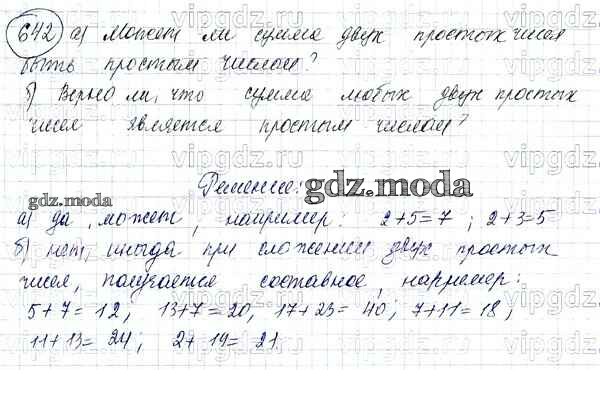 642 а) Может ли сумма двух простых чисел
быть простым числом?
б) Верно ли, что сумма любых двух простых
чисел является простым числом?
Решение:
gdz.moda
gdz.moda
а) да, может, например: 2+5=7 ; 2+3=5
б) нет, иногда при сложении двух простых
чисел, получается составное, например:
5+7=12, 13+7=20, 17+23=40; 7+11=18;
11+13=24; 2+19=21.
vipgdz.ru